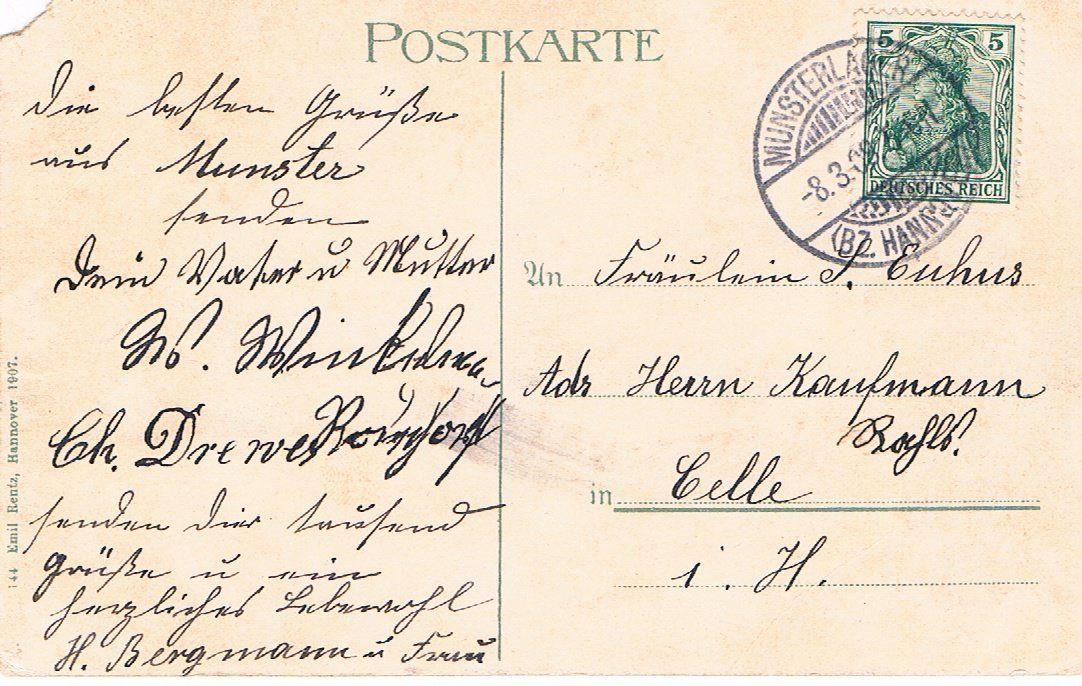 POSTKARTE
Die besten Grüße
aus Munster
senden
Dein Vater u Mutter
W. Winkelma
Ch. Drewes
senden dir tausend
Grüße u ein
herzliches Lebewohl
H. Bergmann u Frau
144 Emil Rentz, Hannover 1907.
5 5
DEUTSCHES REICH
MUNSTERLAGER
-8.3.
(BZ. HANNOV
An Fräulein S. Euhus
Adr Herrn Kaufmann
Rahls.
in Celle
i. H.